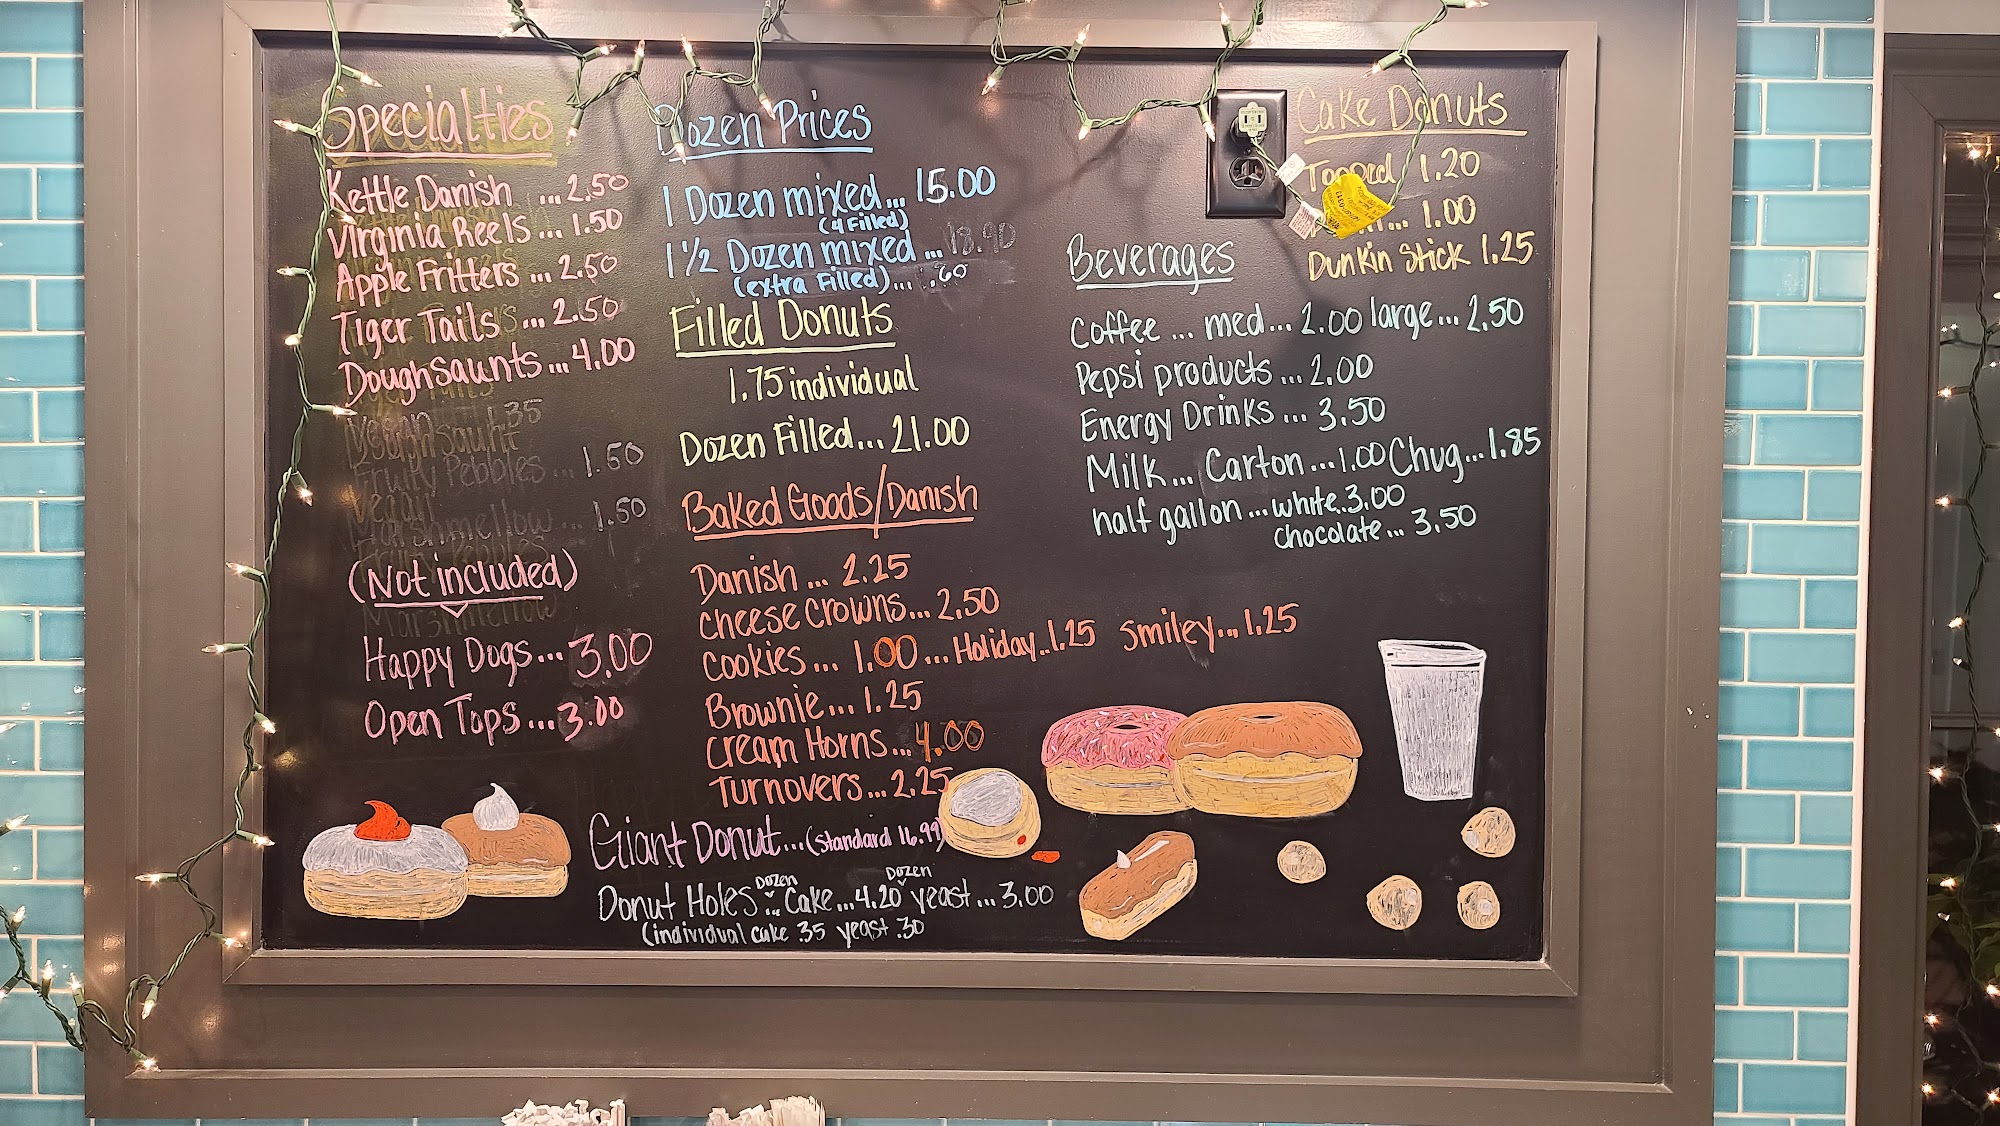 Specialties
Kettle Danish ... 2.50
Virginia Reels ... 1.50
Apple Fritters ... 2.50
Tiger Tails ... 2.50
Doughsaunts ... 4.00
Vegan
Fruity Pebbles ... 1.50
Vegan
Marshmellow ... 1.50
(Not included)
Happy Dogs ... 3.00
Open Tops ... 3.00
Dozen Prices
1 Dozen mixed ... 15.00
(4 Filled)
1 1/2 Dozen mixed ... 18.90
(extra Filled) ... .60
Filled Donuts
1.75 individual
Dozen Filled ... 21.00
Baked Goods/Danish
Danish ... 2.25
Cheese Crowns ... 2.50
Cookies ... 1.00 ... Holiday .. 1.25 Smiley ... 1.25
Brownie ... 1.25
Cream Horns ... 4.00
Turnovers ... 2.25
Giant Donut ... (standard 16.99)
Donut Holes ... Dozen Cake ... 4.20 Dozen yeast ... 3.00
(individual cake .35 yeast .30
Cake Donuts
Topped 1.20
... 1.00
Dunkin Stick 1.25
Beverages
Coffee ... med ... 2.00 large ... 2.50
Pepsi products ... 2.00
Energy Drinks ... 3.50
Milk ... Carton ... 1.00 Chug ... 1.85
half gallon ... white .. 3.00
chocolate ... 3.50